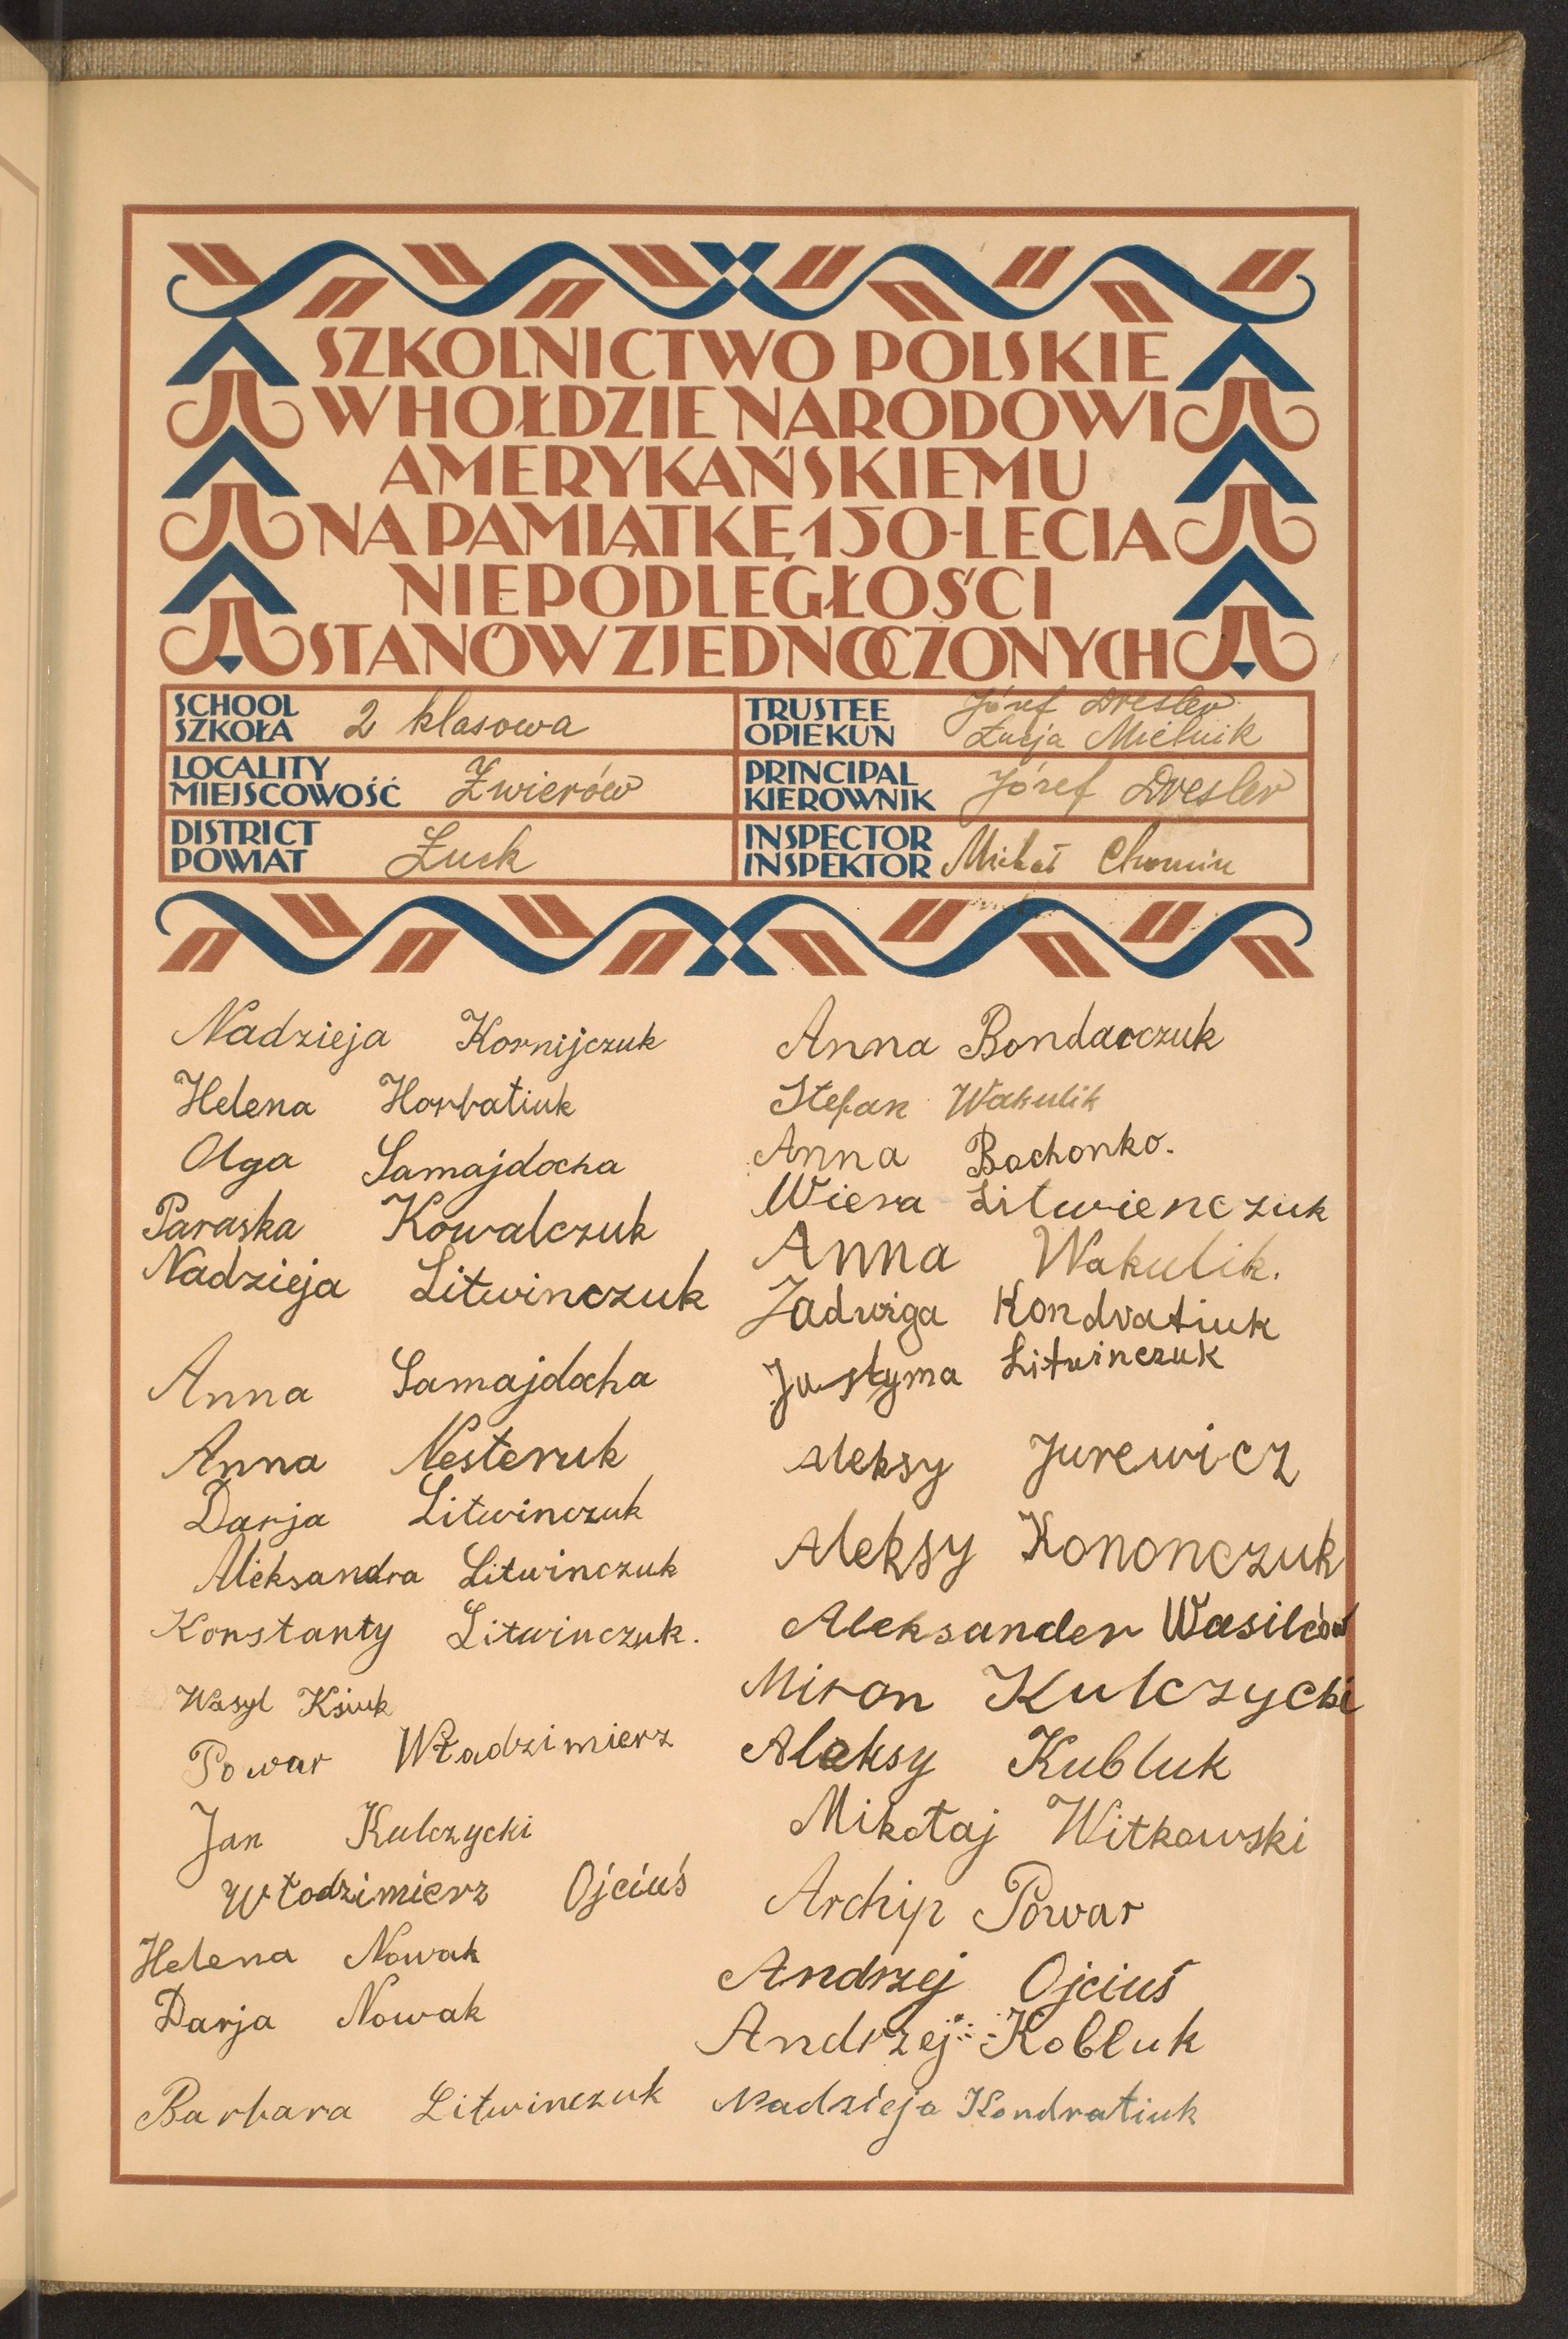 SZKOLNICTWO POLSKIE
W HOŁDZIE NARODOWI
AMERYKAŃSKIEMU
NA PAMIĄTKĘ 150-LECIA
NIEPODLEGŁOŚCI
STANÓW ZJEDNOCZONYCH
SCHOOL
SZKOŁA
2 klasowa
TRUSTEE
OPIEKUN
Józef Dresler
Łucja Mielnik
LOCALITY
MIEJSCOWOŚĆ
Żwierów
PRINCIPAL
KIEROWNIK
Józef Dresler
DISTRICT
POWIAT
Łuck
INSPECTOR
INSPEKTOR
Michał Chomin
Nadzieja Kornijczuk
Helena Horbatiuk
Olga Samajdocha
Paraska Kowalczuk
Nadzieja Litwinczuk
Anna Samajdocha
Anna Nesteruk
Darja Litwinczuk
Aleksandra Litwinczuk
Konstanty Litwinczuk.
Wasyl Ksiuk
Powar Władzimierz
Jan Kulczycki
Włodzimierz Ojciuś
Helena Nowak
Darja Nowak
Barbara Litwinczuk
Anna Bondarczuk
Stefan Wakulik
Anna Bachonko.
Wiera Litwienczuk
Anna Wakulik.
Jadwiga Kondratiuk
Justyma Litwinczuk
Aleksy Jurewicz
Aleksy Kononczuk
Aleksander Wasilców
Miron Kulczycki
Aleksy Kubluk
Mikołaj Witkowski
Archip Powar
Andrzej Ojciuś
Andrzej Kobluk
Nadzieja Kondratiuk